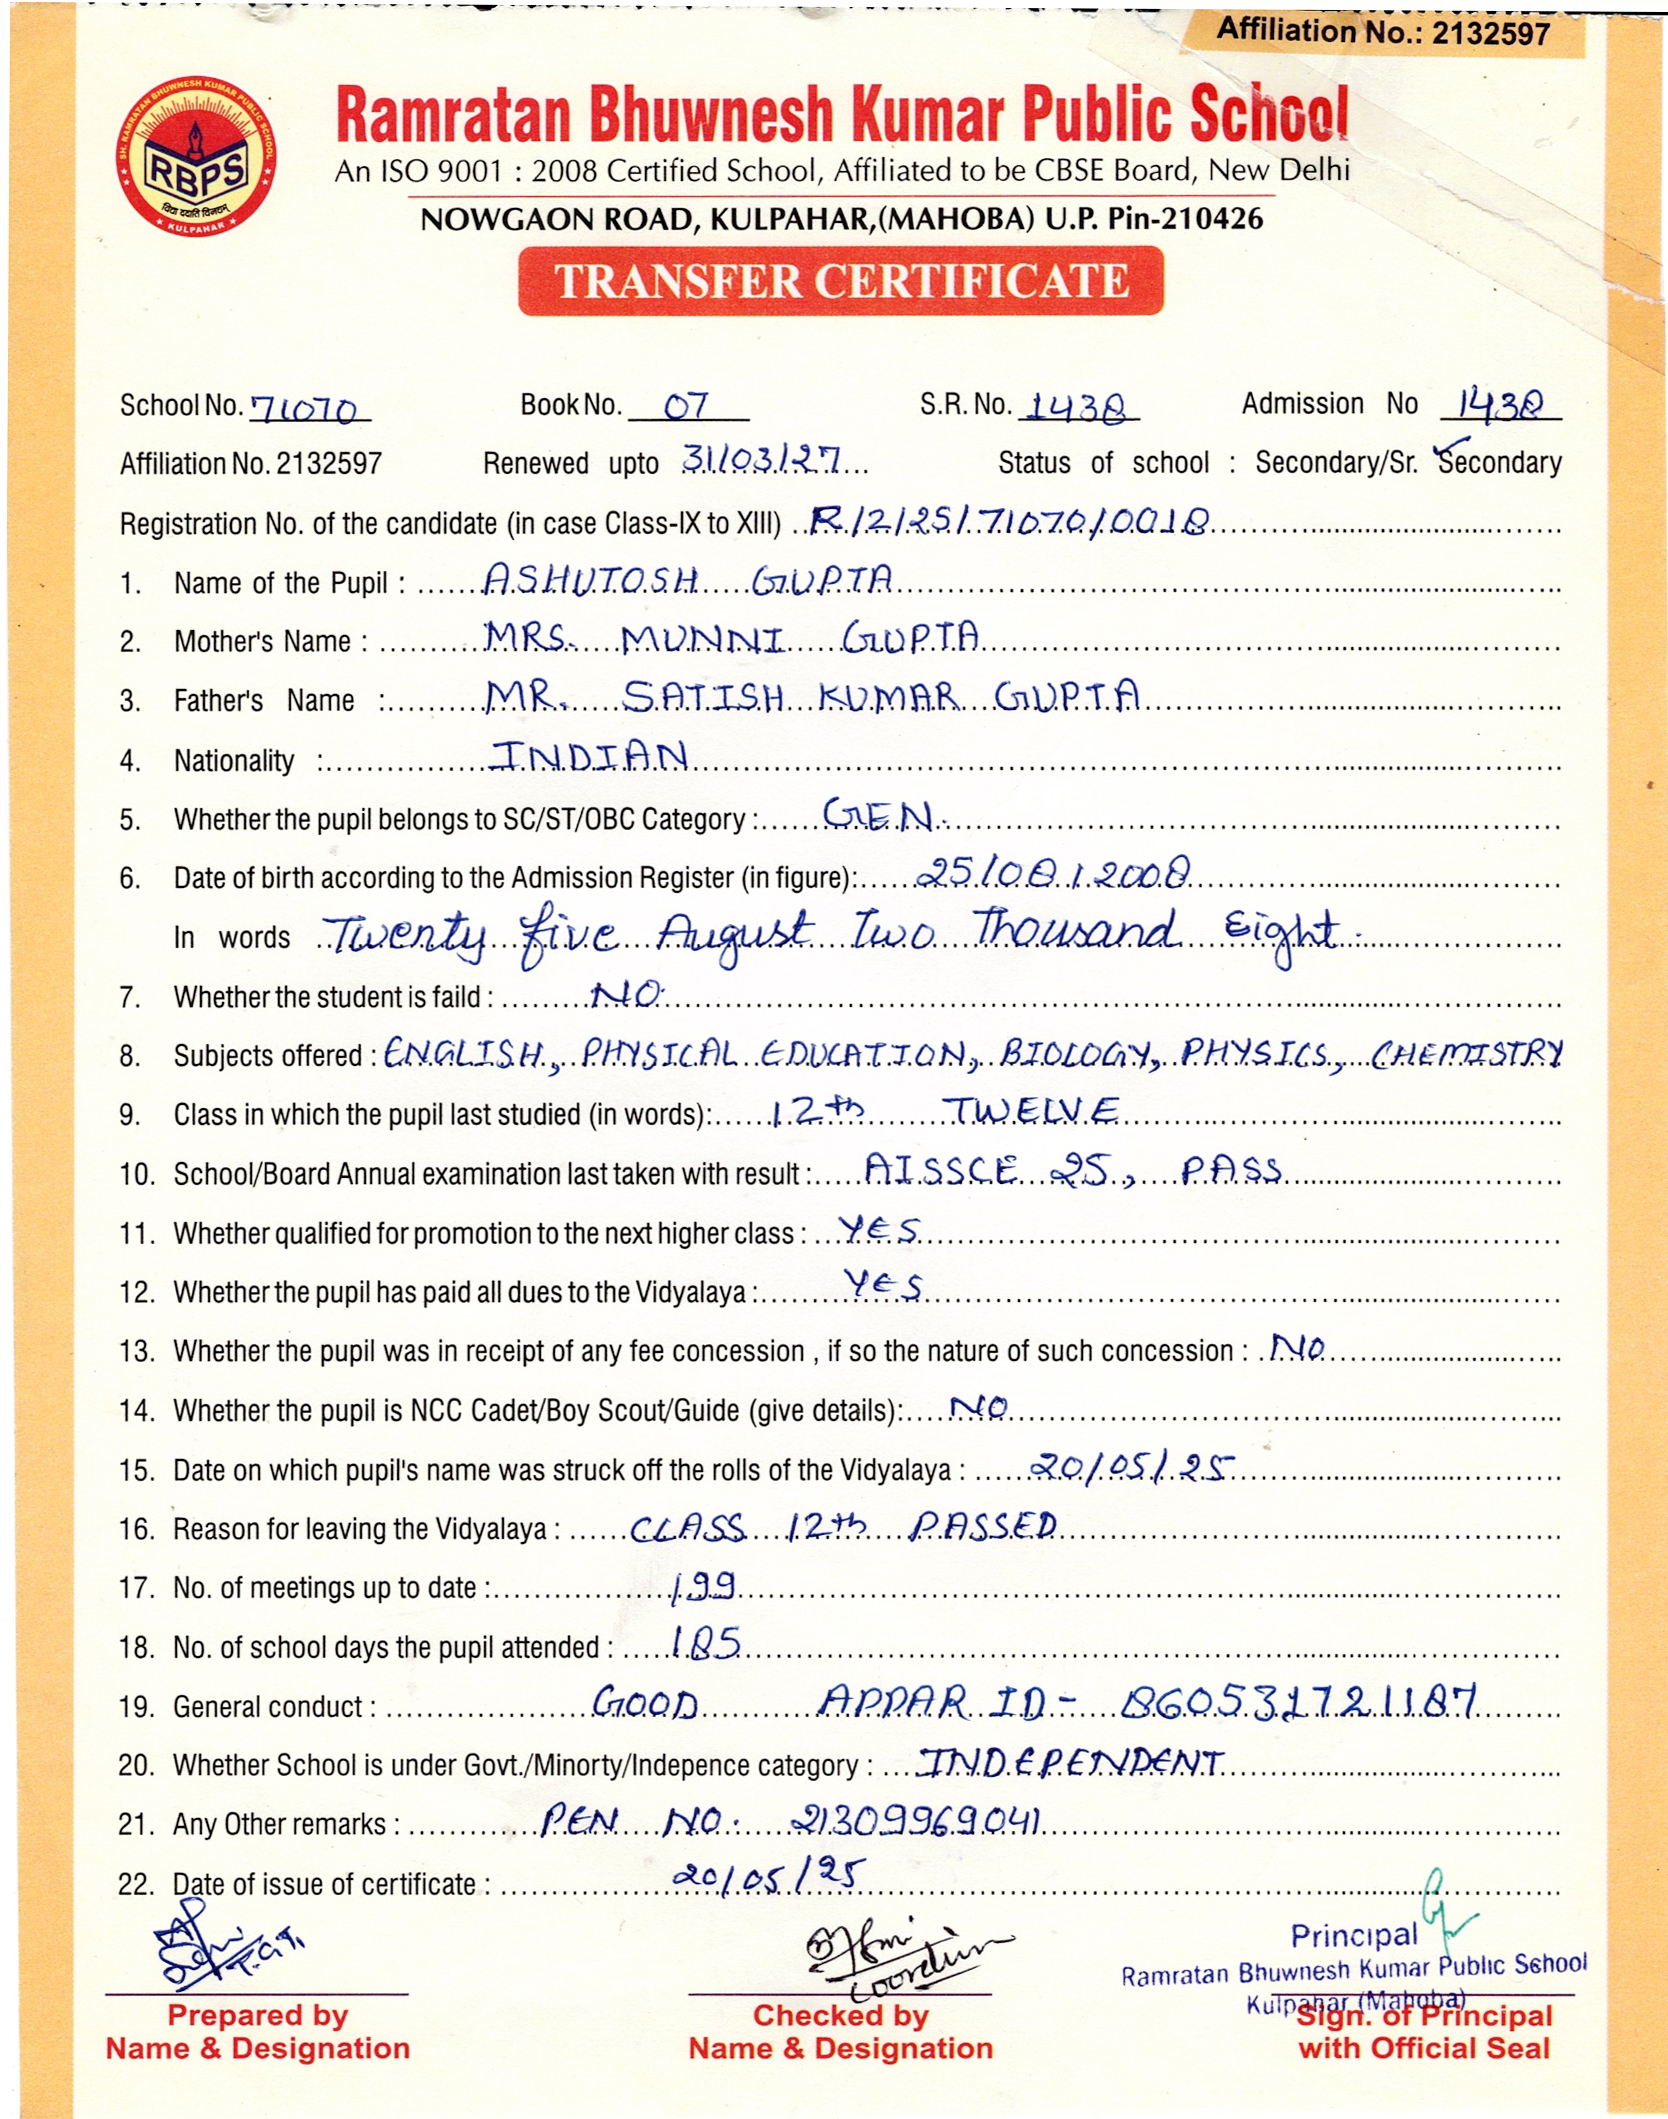 Affiliation No.: 2132597
SH. RAMRATAN BHUWNESH KUMAR PUBLIC SCHOOL
RBPS
विद्या ददाति विनयम्
KULPAHAR
Ramratan Bhuwnesh Kumar Public School
An ISO 9001 : 2008 Certified School, Affiliated to be CBSE Board, New Delhi
NOWGAON ROAD, KULPAHAR,(MAHOBA) U.P. Pin-210426
TRANSFER CERTIFICATE
School No. 71070 Book No. 07 S.R. No. 1438 Admission No 1438
Affiliation No. 2132597 Renewed upto 31/03/27 Status of school : Secondary/Sr. Secondary
Registration No. of the candidate (in case Class-IX to XIII) R/2/25/71070/0018
1. Name of the Pupil : ASHUTOSH GUPTA
2. Mother's Name : MRS. MUNNI GUPTA
3. Father's Name : MR. SATISH KUMAR GUPTA
4. Nationality : INDIAN
5. Whether the pupil belongs to SC/ST/OBC Category : GEN.
6. Date of birth according to the Admission Register (in figure): 25/08/2008
In words Twenty five August Two Thousand Eight.
7. Whether the student is faild : NO
8. Subjects offered : ENGLISH, PHYSICAL EDUCATION, BIOLOGY, PHYSICS, CHEMISTRY
9. Class in which the pupil last studied (in words): 12th TWELVE
10. School/Board Annual examination last taken with result : AISSCE 25, PASS
11. Whether qualified for promotion to the next higher class : YES
12. Whether the pupil has paid all dues to the Vidyalaya : YES
13. Whether the pupil was in receipt of any fee concession , if so the nature of such concession : NO
14. Whether the pupil is NCC Cadet/Boy Scout/Guide (give details): NO
15. Date on which pupil's name was struck off the rolls of the Vidyalaya : 20/05/25
16. Reason for leaving the Vidyalaya : CLASS 12th PASSED
17. No. of meetings up to date : 199
18. No. of school days the pupil attended : 185
19. General conduct : GOOD APPAR ID- 860531721187
20. Whether School is under Govt./Minorty/Indepence category : INDEPENDENT
21. Any Other remarks : PEN NO. 21309969041
22. Date of issue of certificate : 20/05/25
T.G.T.
Principal
Ramratan Bhuwnesh Kumar Public School
Kulpahar (Mahoba)
Prepared by Checked by Sign. of Principal
Name & Designation Name & Designation with Official Seal